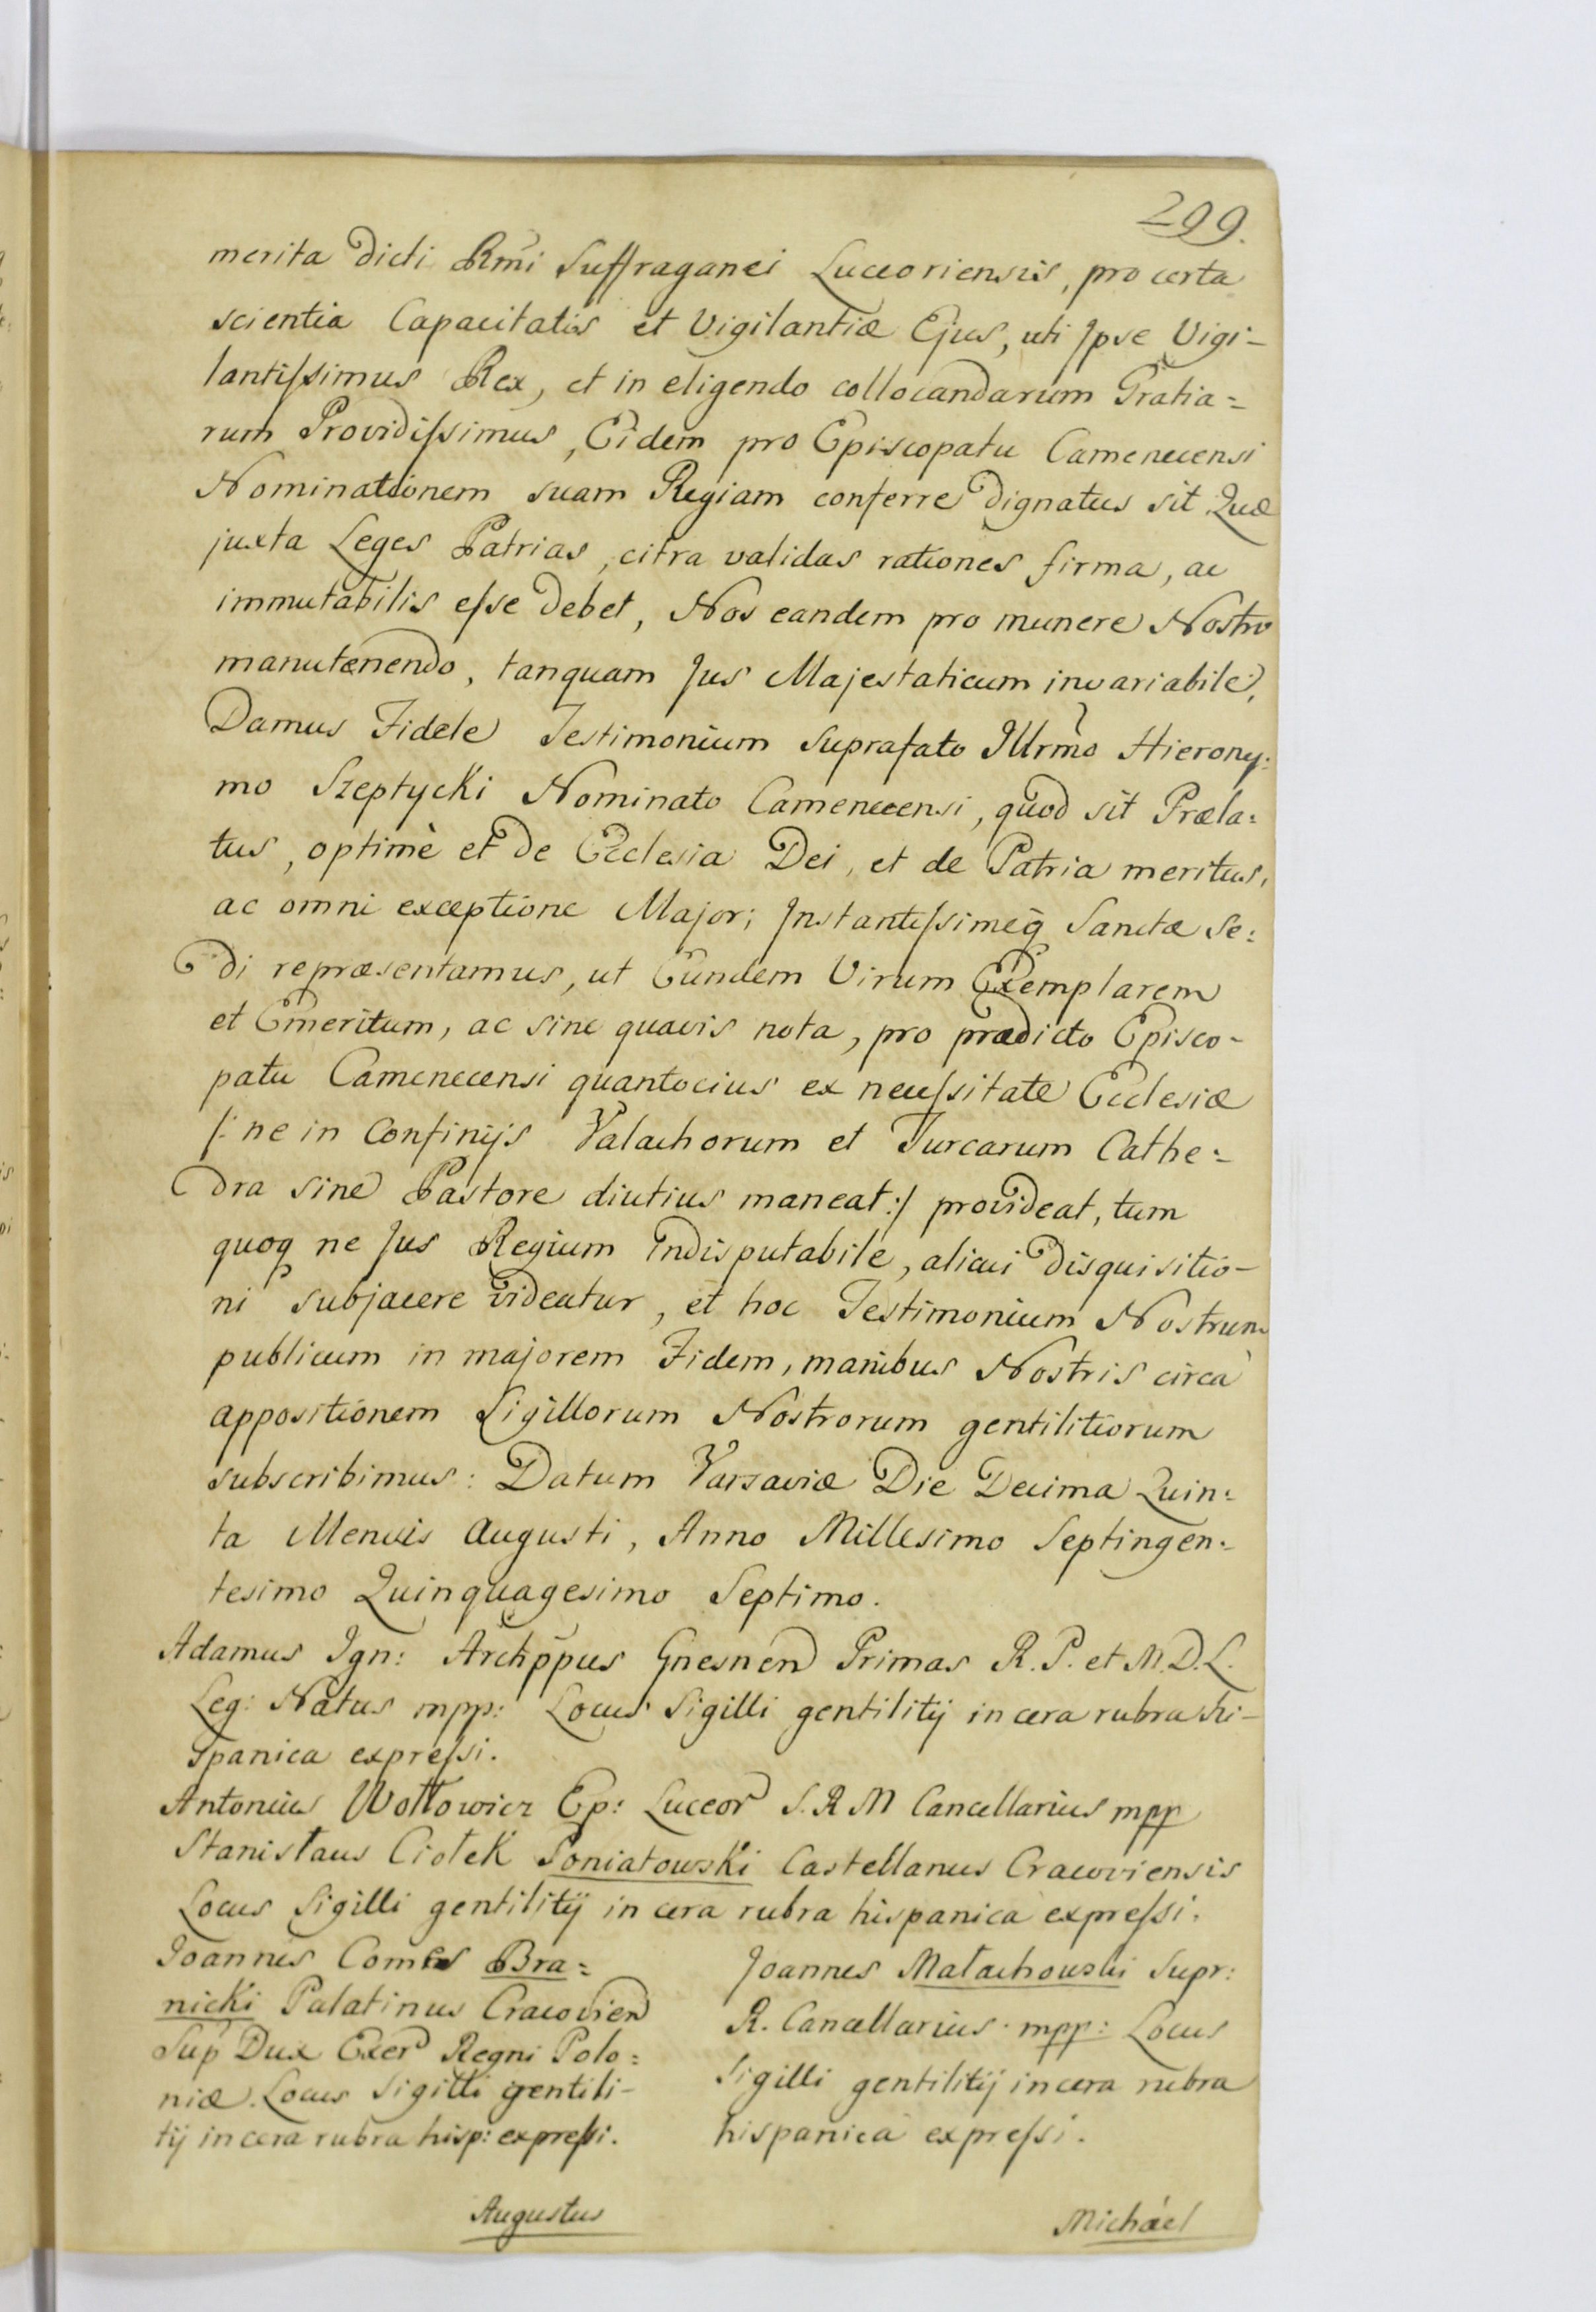 299.
merita dicti Rmi Suffraganei Luceoriensis, pro certa
scientia Capacitatis et Vigilantiæ Ejus, uti Ipse Vigi-
lantissimus Rex, et in eligendo collocandarum Gratia=
rum Providissimus, Eidem pro Episcopatu Camenecensi
Nominationem suam Regiam conferre dignatus sit. Quæ
juxta Leges Patrias, citra validas rationes firma, ac
immutabilis esse debet, Nos eandem pro munere Nostro
manutenendo, tanquam Jus Majestaticum invariabile,
Damus Fidele Testimonium suprafato Illrmo Hierony:
mo Szeptycki Nominato Camenecensi, quod sit Præla:
tus, optimè et de Ecclesia Dei, et de Patria meritus,
ac omni exceptione Major; Instantissimeq Sanctæ Se:
di repræsentamus, ut Eundem Virum Exemplarem
et Emeritum, ac sine quavis nota, pro prædicto Episco-
patu Camenecensi quantocius ex necessitate Ecclesiæ
/: ne in Confinijs Valachorum et Turcarum Cathe:
dra sine Pastore diutius maneat :/ provideat, tum
quoq ne Jus Regium Indisputabile, alicui disquisitio-
ni subjacere videatur, et hoc Testimonium Nostrum
publicum in majorem Fidem, manibus Nostris circa
appositionem Sigillorum Nostrorum gentilitiorum
subscribimus: Datum Varsaviæ Die Decima Quin:
ta Mensis Augusti, Anno Millesimo Septingen:
tesimo Quinquagesimo Septimo.
Adamus Ign: Archippus Gnesnen Primas R. P. et M. D. L.
Leg: Natus mpp: Locus Sigilli gentilitij in cera rubra hi-
spanica expressi.
Antonius Wołłowicz Ep: Luceor S. R M Cancellarius mpp
Stanisłaus Ciołek Poniatowski Castellanus Cracoviensis
Locus Sigilli gentilitij in cera rubra hispanica expressi.
Joannes Comes Bra=
nicki Palatinus Cracovien
Sup Dux Exer Regni Polo=
niæ. Locus Sigilli gentili-
tij in cera rubra hisp: expressi.
Joannes Małachowski Supr:
R. Cancellarius mpp: Locus
Sigilli gentilitij in cera rubra
hispanica expressi.
Augustus
Michael